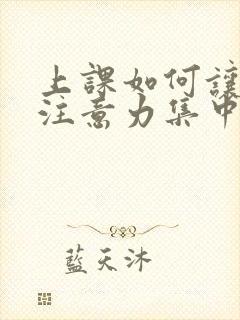 上課如何讓
注意力集中
藍天沐